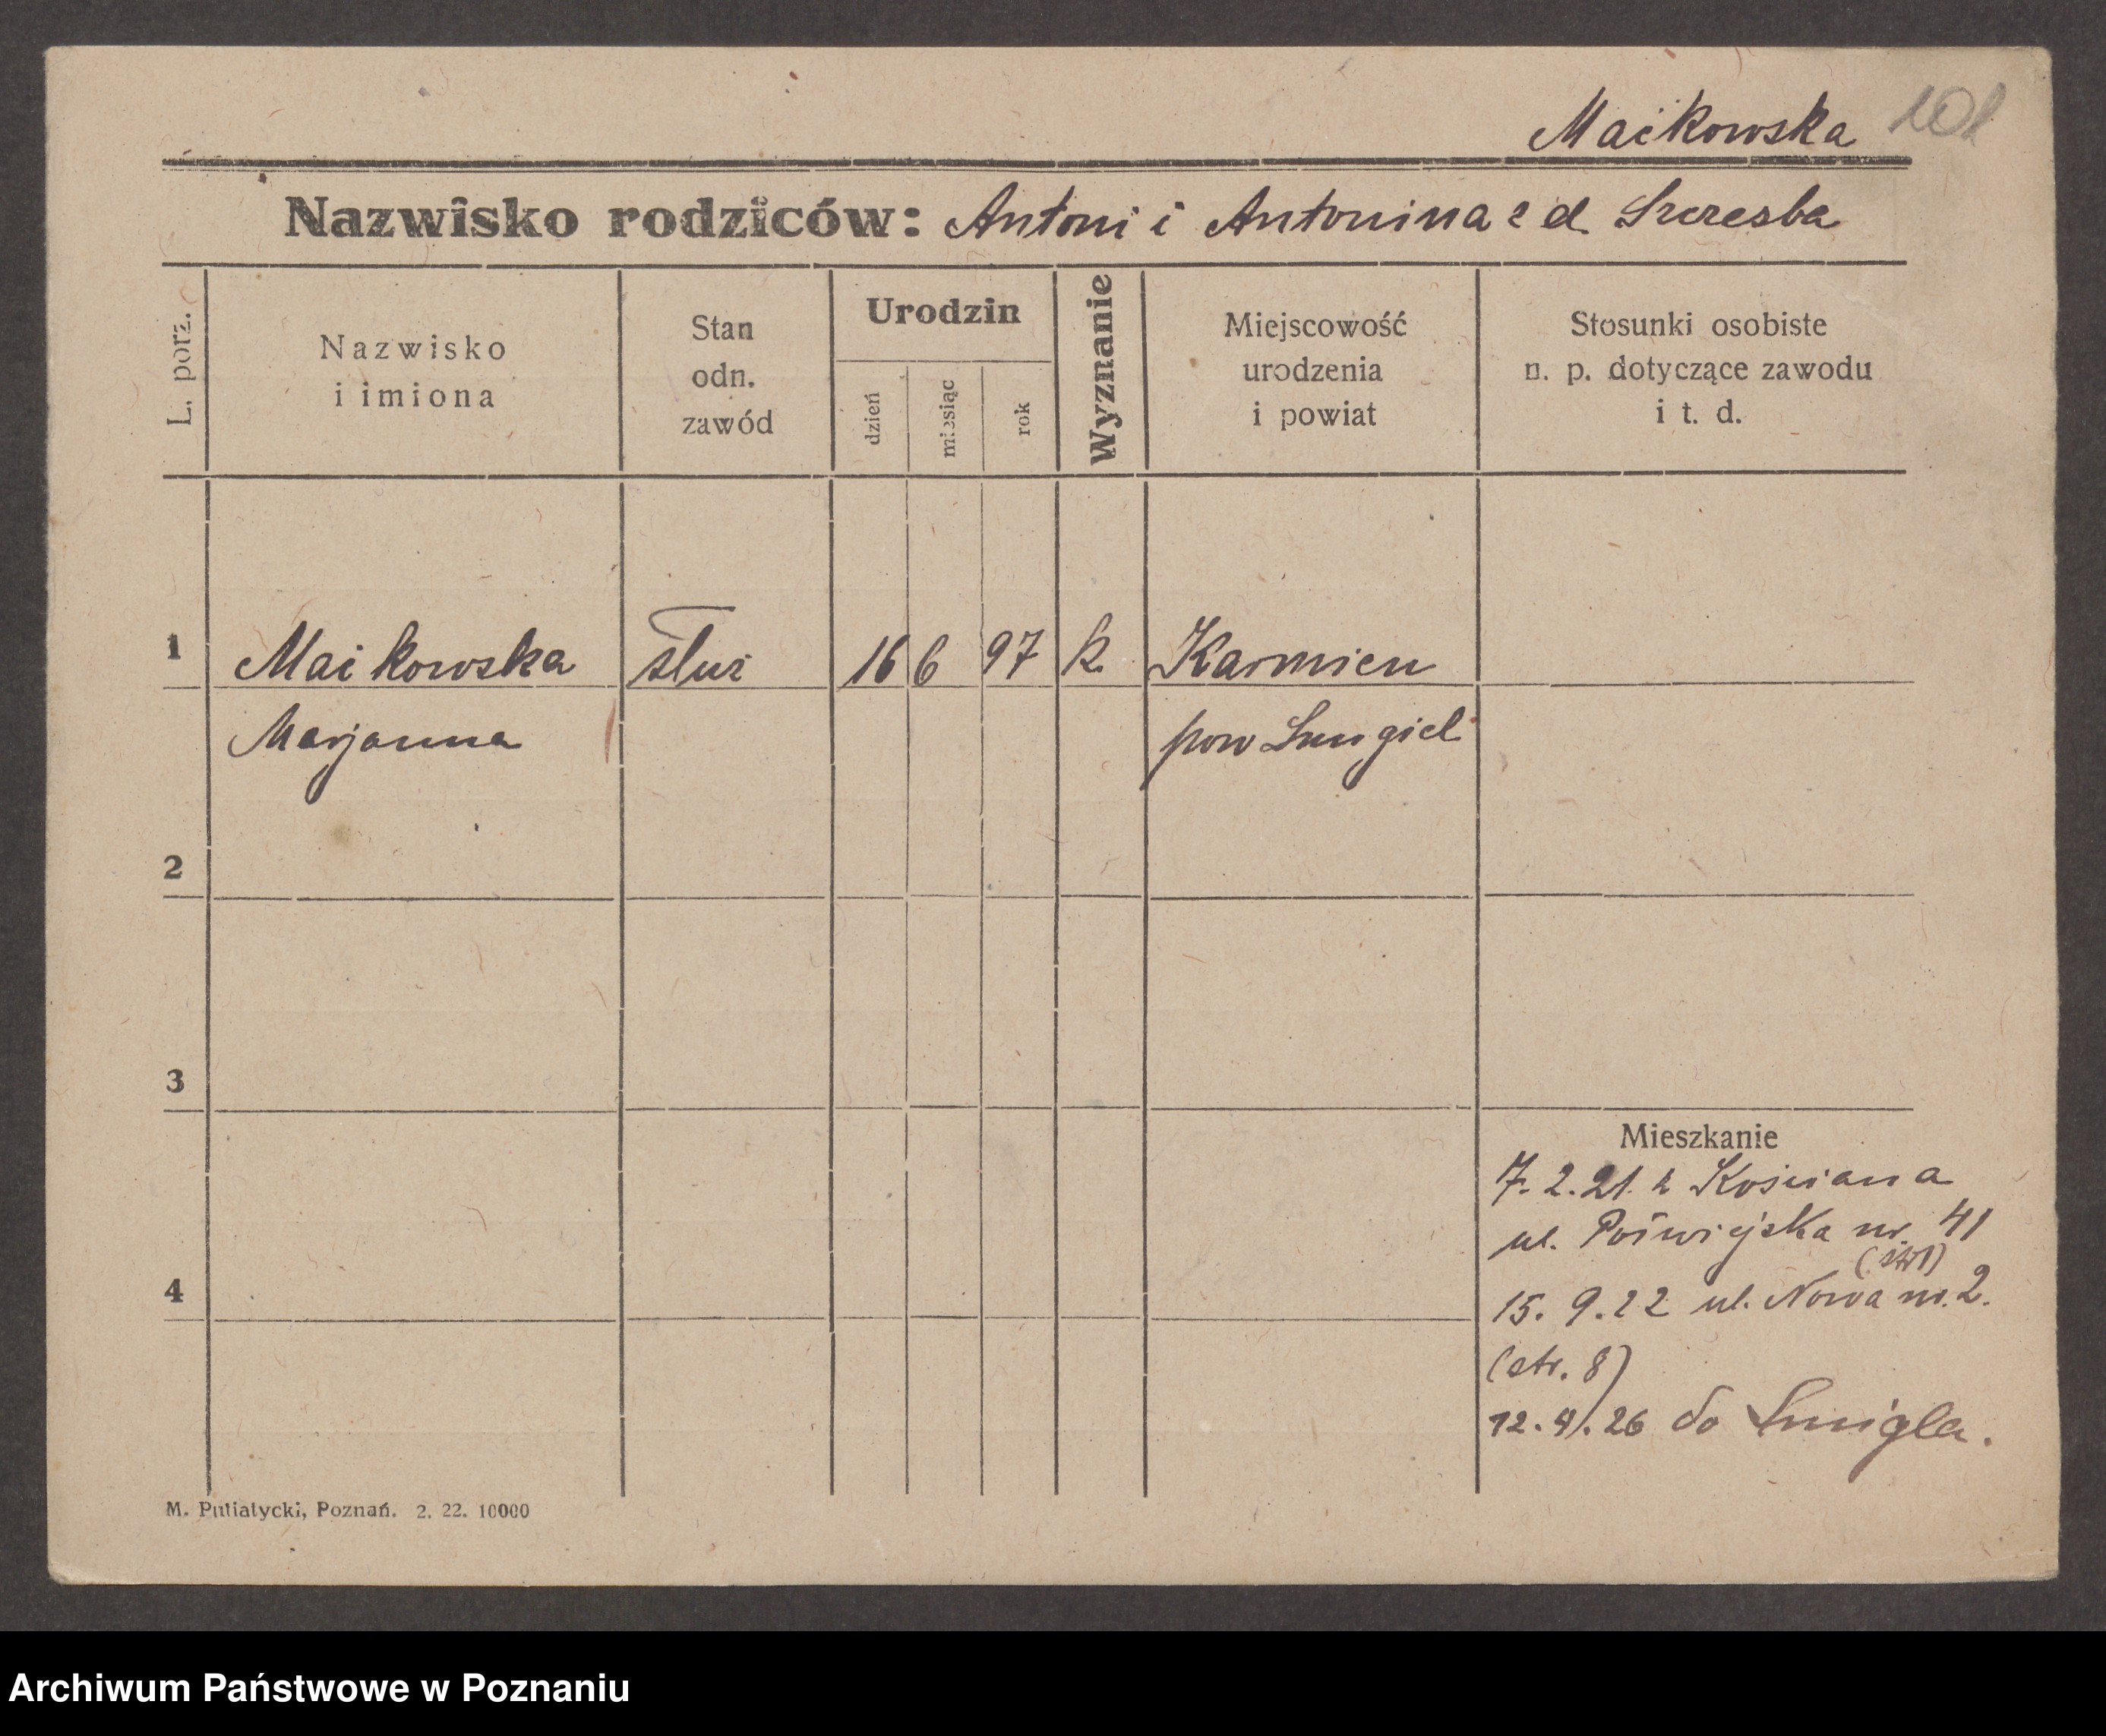 Maikowska 101
Nazwisko rodziców: Antoni i Antonina z d. Szczesba
L. porz.
Nazwisko
i imiona
Stan
odn.
zawód
Urodzin
dzień
miesiąc
rok
Wyznanie
Miejscowość
urodzenia
i powiat
Stosunki osobiste
n. p. dotyczące zawodu
i t. d.
1 Maikowska służ 16 6 97 k. Karmien
Marjanna pow Smigiel
2
3
Mieszkanie
7. 2. 21. z Kościana
ul. Poświejska nr. 41
4
15. 9. 22 ul. Nowa nr. 2.
(str. 8)
12. 4. 26 do Smigla.
M. Putiatycki, Poznań. 2. 22. 10000
Archiwum Państwowe w Poznaniu